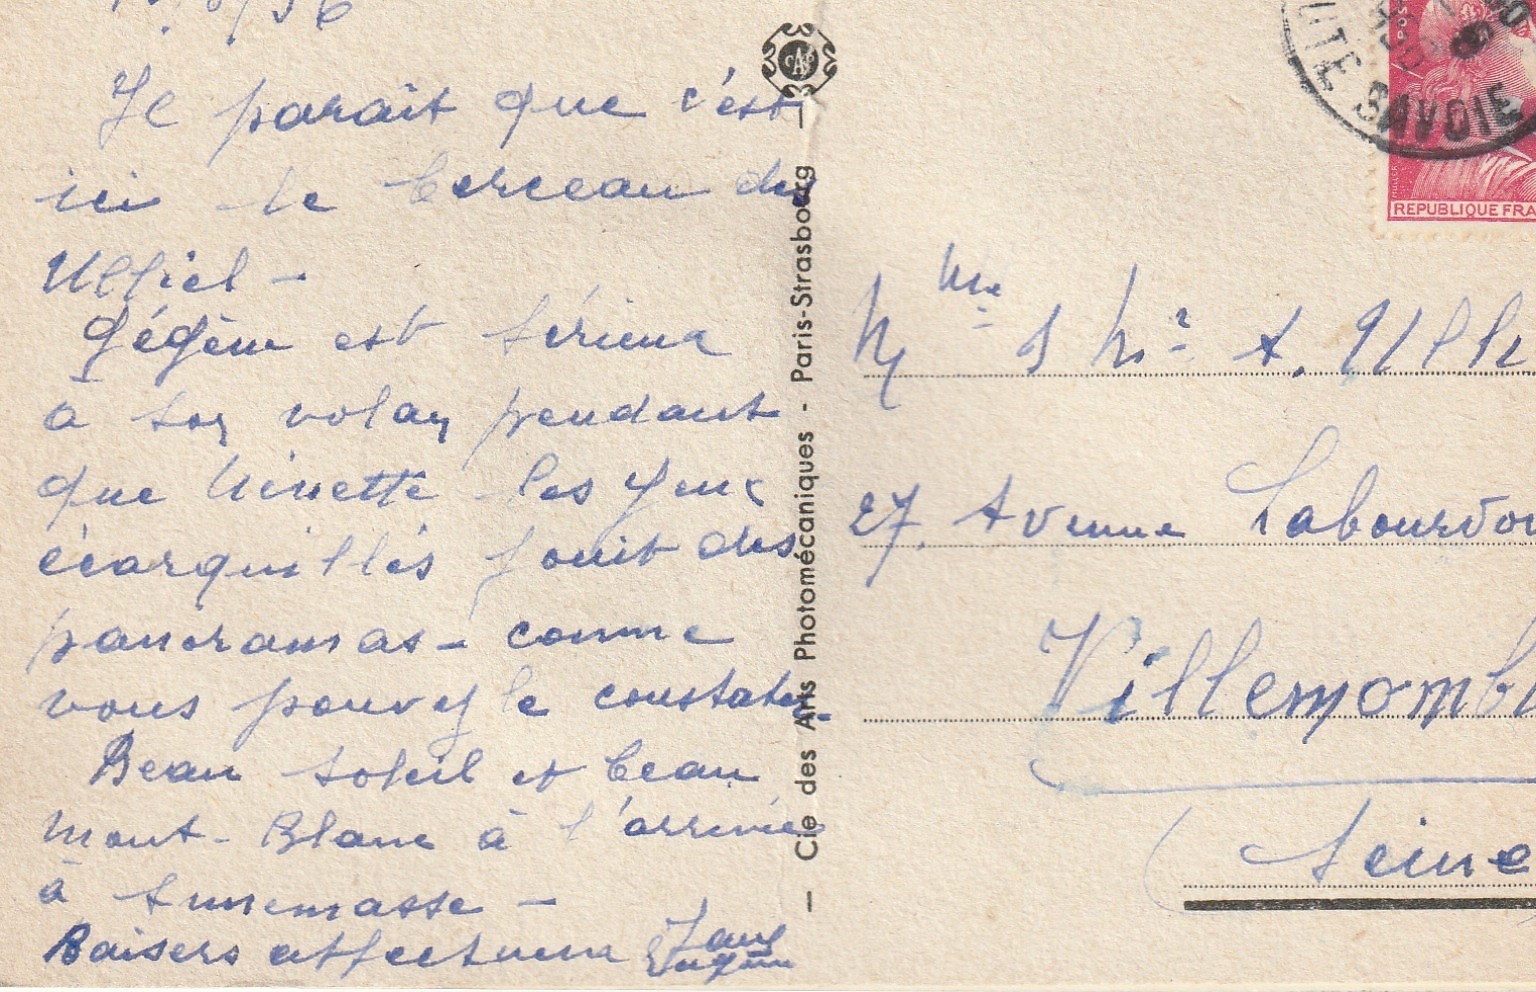 Il parait que c'est
ici le berceau des
Ulfiel -
Gégène est sérieux
à son volan pendant
que Ninette les yeux
écarquillés jouit des
panoramas - comme
vous pouvez le constater -
Beau soleil et beau
Mont-Blanc à l'arrivée
à Annemasse -
Baisers affectueux
Eugène
Cie des Arts Photomécaniques - Paris-Strasbourg
CAP
SAVOIE
POS
REPUBLIQUE FRA
Mme & Mr A.
27, Avenue Labourdon
Villemombl
Seine